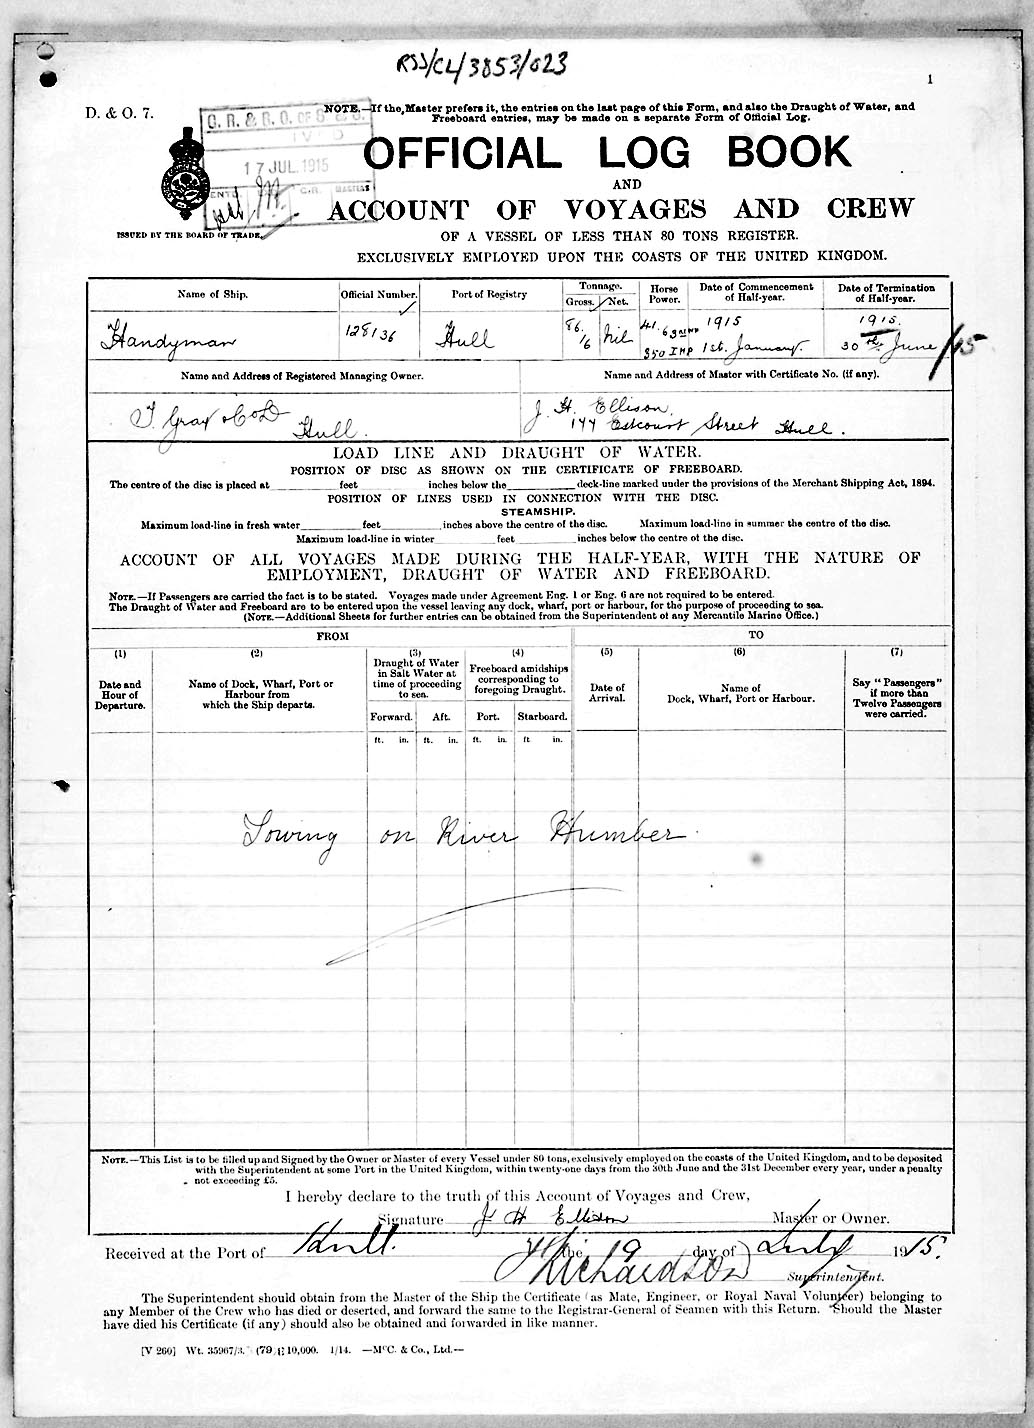 RSS/CL/3853/023
1
D. & O. 7.
NOTE.—If the Master prefers it, the entries on the last page of this Form, and also the Draught of Water, and
Freeboard entries, may be made on a separate Form of Official Log.
G. R. & R. O. OF S & S.
17 JUL.1915
OFFICIAL LOG BOOK
AND
ACCOUNT OF VOYAGES AND CREW
ISSUED BY THE BOARD OF TRADE.
OF A VESSEL OF LESS THAN 80 TONS REGISTER.
EXCLUSIVELY EMPLOYED UPON THE COASTS OF THE UNITED KINGDOM.
Name of Ship. Official Number. Port of Registry Tonnage. Gross. Net. Horse Power. Date of Commencement of Half-year. Date of Termination of Half-year.
Handyman 128136 Hull 86.16 Nil 41.63 NHP 350 IHP 1915 1st. January. 1915. 30th June /15
Name and Address of Registered Managing Owner. Name and Address of Master with Certificate No. (if any).
T Gray & Co Ld Hull. J. H. Ellison,
144 Estcourt Street Hull.
LOAD LINE AND DRAUGHT OF WATER.
POSITION OF DISC AS SHOWN ON THE CERTIFICATE OF FREEBOARD.
The centre of the disc is placed at feet inches below the deck-line marked under the provisions of the Merchant Shipping Act, 1894.
POSITION OF LINES USED IN CONNECTION WITH THE DISC.
STEAMSHIP.
Maximum load-line in fresh water feet inches above the centre of the disc. Maximum load-line in summer the centre of the disc.
Maximum load-line in winter feet inches below the centre of the disc.
ACCOUNT OF ALL VOYAGES MADE DURING THE HALF-YEAR, WITH THE NATURE OF
EMPLOYMENT, DRAUGHT OF WATER AND FREEBOARD.
NOTE.—If Passengers are carried the fact is to be stated. Voyages made under Agreement Eng. 1 or Eng. 6 are not required to be entered.
The Draught of Water and Freeboard are to be entered upon the vessel leaving any dock, wharf, port or harbour, for the purpose of proceeding to sea.
(NOTE.—Additional Sheets for further entries can be obtained from the Superintendent of any Mercantile Marine Office.)
FROM TO
(1) (2) (3) (4) (5) (6) (7)
Date and Hour of Departure. Name of Dock, Wharf, Port or Harbour from which the Ship departs. Draught of Water in Salt Water at time of proceeding to sea. Freeboard amidships corresponding to foregoing Draught. Date of Arrival. Name of Dock, Wharf, Port or Harbour. Say "Passengers" if more than Twelve Passengers were carried.
Forward. Aft. Port. Starboard.
ft. in. ft. in. ft. in. ft in.
Towing on River Humber
NOTE.—This List is to be filled up and Signed by the Owner or Master of every Vessel under 80 tons, exclusively employed on the coasts of the United Kingdom, and to be deposited
with the Superintendent at some Port in the United Kingdom, within twenty-one days from the 30th June and the 31st December every year, under a penalty
not exceeding £5.
I hereby declare to the truth of this Account of Voyages and Crew,
Signature J H Ellison Master or Owner.
Received at the Port of Hull. the 19 day of July 1915.
Richardson Superintendent.
The Superintendent should obtain from the Master of the Ship the Certificate (as Mate, Engineer, or Royal Naval Volunteer) belonging to
any Member of the Crew who has died or deserted, and forward the same to the Registrar-General of Seamen with this Return. Should the Master
have died his Certificate (if any) should also be obtained and forwarded in like manner.
[V 260] Wt. 35967/3. (79 10,000. 1/14. —McC. & Co., Ltd.—